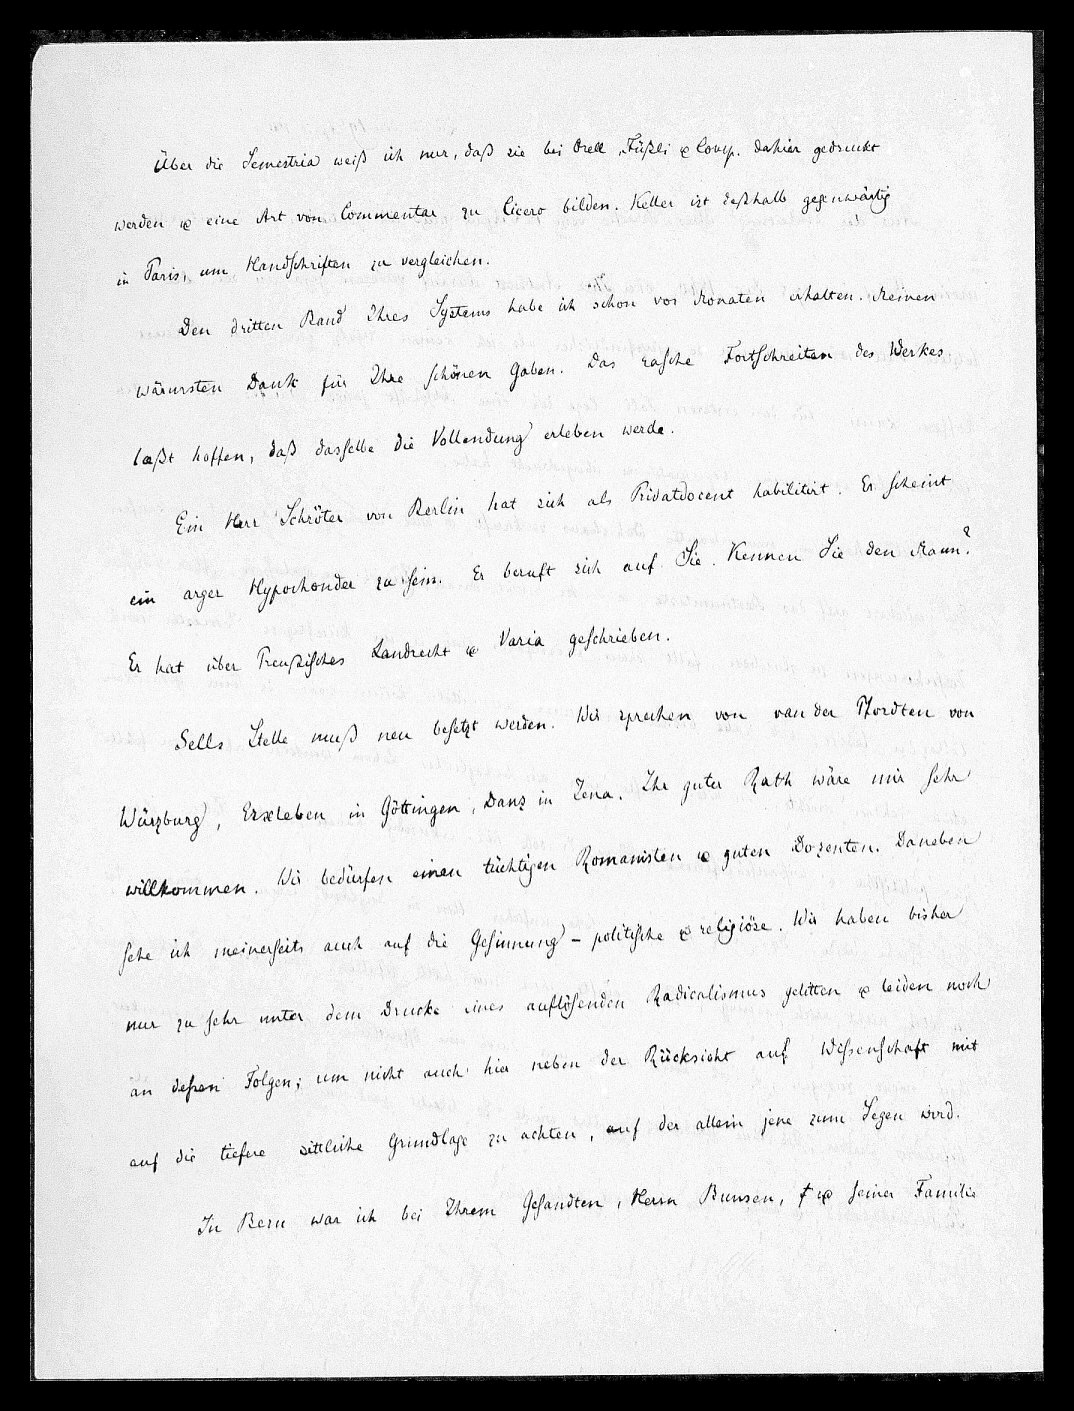 Über die Semestria weiß ich nur, daß sie bei Orell, Füßli & Comp. dahier gedruckt
werden & eine Art von Commentar zu Cicero bilden. Keller ist deßhalb gegenwärtig
in Paris, um Handschriften zu vergleichen.
Den dritten Band Ihres Systems habe ich schon vor Monaten erhalten. Meinen
wärmsten Dank für Ihre schönen Gaben. Das rasche Fortschreiten des Werkes
laßt hoffen, daß dasselbe die Vollendung erleben werde.
Ein Herr Schröter von Berlin hat sich als Privatdocent habilitirt. Er scheint
ein arger Hypochonder zu sein. Er beruft sich auf Sie. Kennen Sie den Mann?
Er hat über Preußisches Landrecht & Varia geschrieben.
Sells Stelle muß neu besetzt werden. Wir sprechen von van der Pfordten von
Würzburg, Erxleben in Göttingen, Danz in Jena. Ihr guter Rath wäre mir sehr
willkommen. Wir bedürfen einen tüchtigen Romanisten & guten Dozenten. Daneben
sehe ich meinerseits auch auf die Gesinnung – politische & religiöse. Wir haben bisher
nur zu sehr unter dem Drucke eines auflösenden Radicalismus gelitten & leiden noch
an deßen Folgen; um nicht auch hier neben der Rücksicht auf Wissenschaft mit
auf die tiefere sittliche Grundlage zu achten, auf der allein jene zum Segen wird.
In Bern war ich bei Ihrem Gesandten, Herrn Bunsen, & seiner Familie